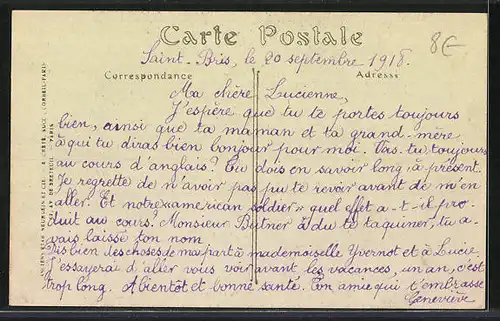 8€
Carte Postale
Saint-Bris, le 20 septembre 1918.
Correspondance
Adresse
Ma chère Lucienne,
J'espère que tu te portes toujours
bien, ainsi que ta maman et ta grand-mère
à qui tu diras bien bonjour pour moi. Vas-tu toujours
au cours d'anglais? Tu dois en savoir long à présent.
Je regrette de n'avoir pas pu te revoir avant de m'en
aller. Et notre « american soldier » quel effet a-t-il pro-
duit au cours? Monsieur Beitner a dû te taquiner, tu a-
vais laissé ton nom
Dis bien des choses de ma part à mademoiselle Yvernot et à Lucie.
J'essayerai d'aller vous voir avant les vacances, un an, c'est
trop long. A bientôt et bonne santé. Ton amie qui t'embrasse
Geneviève